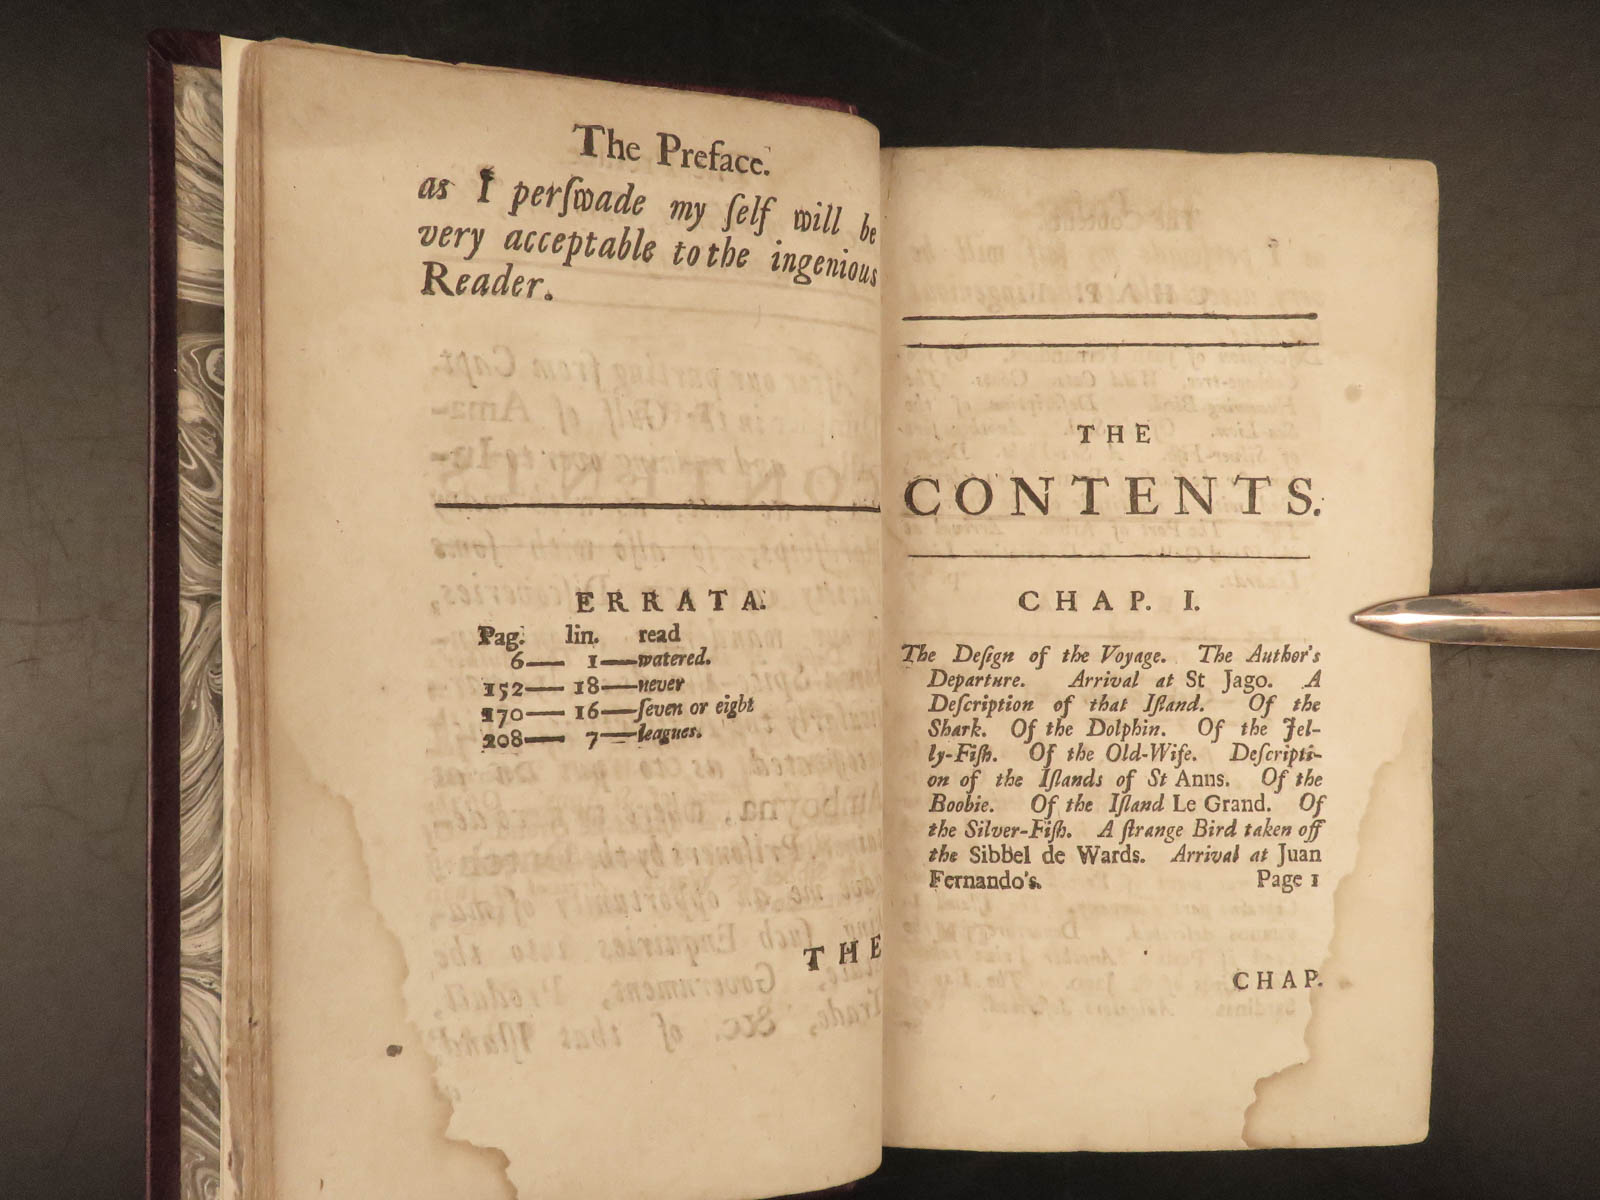 The Preface.
as I perſwade my ſelf will be
very acceptable to the ingenious
Reader.
ERRATA.
Pag. lin. read
6— 1—watered.
152— 18—never
170— 16—ſeven or eight
208— 7—leagues.
THE
THE
CONTENTS.
CHAP. I.
The Deſign of the Voyage. The Author's
Departure. Arrival at St Jago. A
Deſcription of that Iſland. Of the
Shark. Of the Dolphin. Of the Jel-
ly-Fiſh. Of the Old-Wife. Deſcripti-
on of the Iſlands of St Anns. Of the
Boobie. Of the Iſland Le Grand. Of
the Silver-Fiſh. A ſtrange Bird taken off
the Sibbel de Wards. Arrival at Juan
Fernando's. Page 1
CHAP.